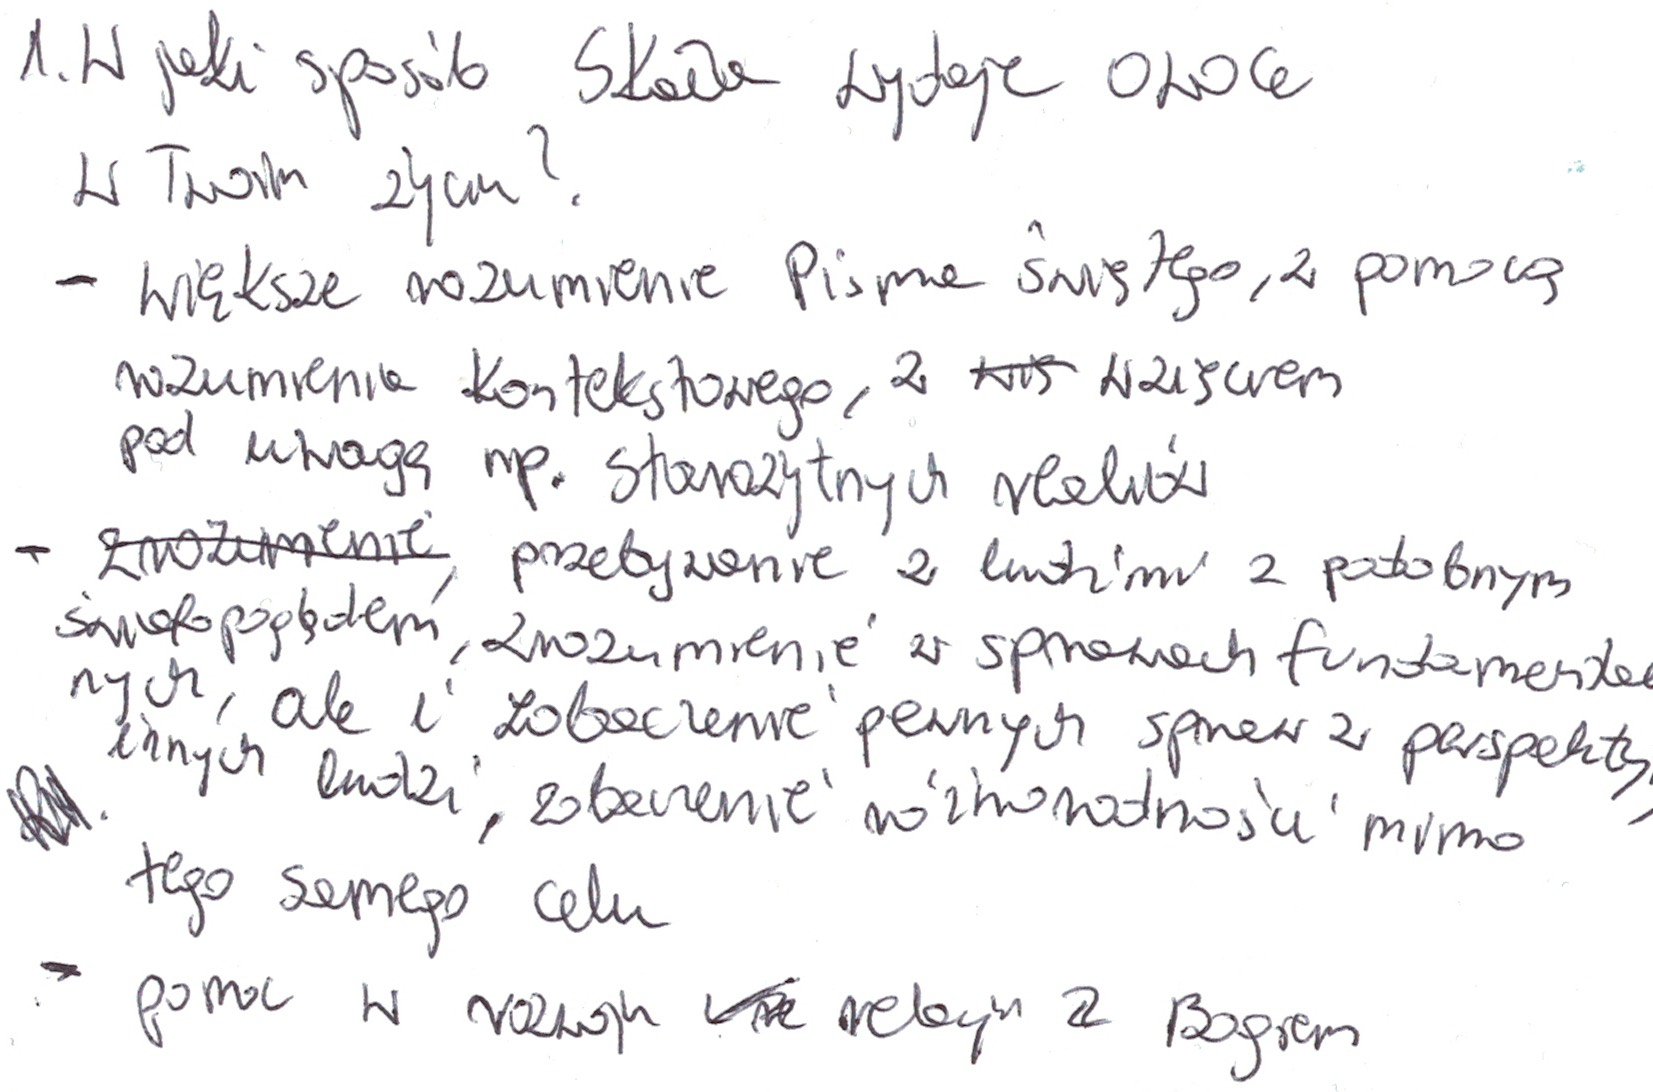 1. W jaki sposób Skała wydaje owoce
w Twoim życiu?
- większe rozumienie Pisma Świętego, z pomocą
rozumienia kontekstowego, z wzięciem
pod uwagę np. starożytnych realiów
- zrozumienie, przebywanie z ludźmi z podobnym
światopoglądem, zrozumienie w sprawach fundamental
nych, ale i zobaczenie pewnych spraw z perspekty
innych ludzi, zobaczenie różnorodności mimo
tego samego celu
- pomoc w rozwoju relacji z Bogiem